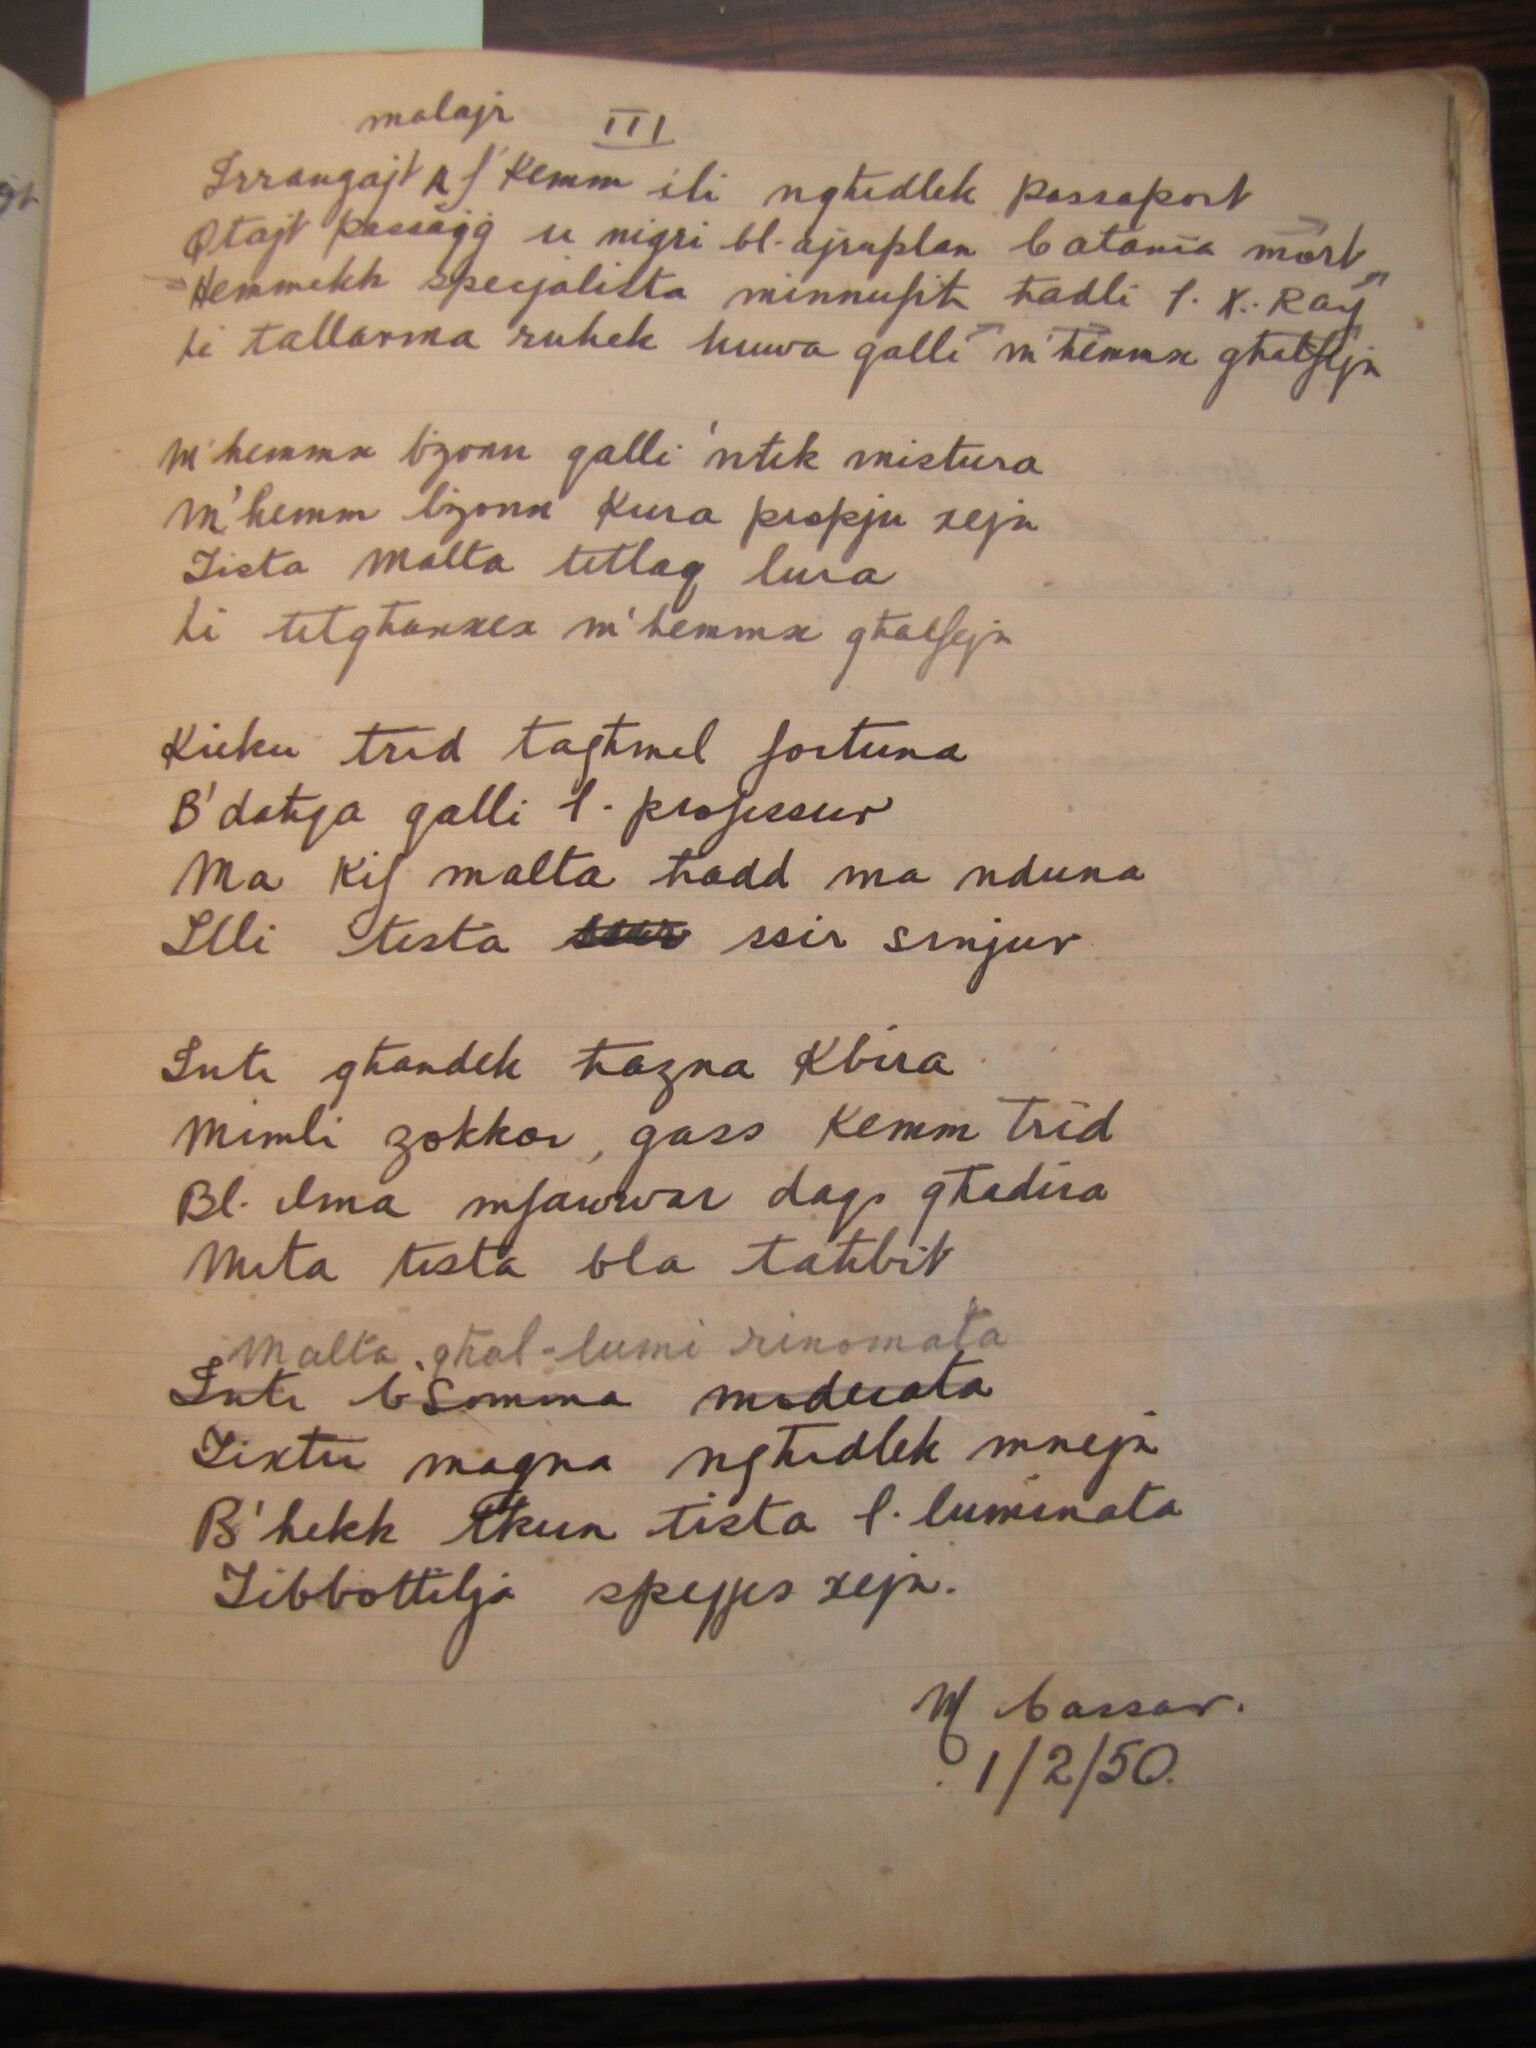 malajr
III
Irrangajt f'Kemm ili nghidlek passaport
Qtajt passagg u nigri bl-ajruplan Catania mort
Hemmekk specjalista minnufih hadli l-X-Ray
li tallarma ruhek huwa qalli m'hemmx ghalfejn
M'hemmx bzonn qalli 'ntek mistura
M'hemm bzonn Kura propju xejn
Tista Malta titlaq lura
li titghaxxex m'hemmx ghalfejn
Kieku trid taghmel fortuna
B'dahqa qalli l-professur
Ma Kif malta hadd ma nduna
Illi tista ssir sinjur
Inti ghandek hazna Kbira
Mimli zokkor, gass Kemm trid
Bl-ilma mfawwar daqs ghadira
Mita tista bla tahbit
Malta ghal-lumi rinomata
Inti b'Somma moderata
Tixtri magna nghidlek mnejn
B'hekk tkun tista l-luminata
Tibbottilja spejjes xejn.
M Cassar.
1/2/50.